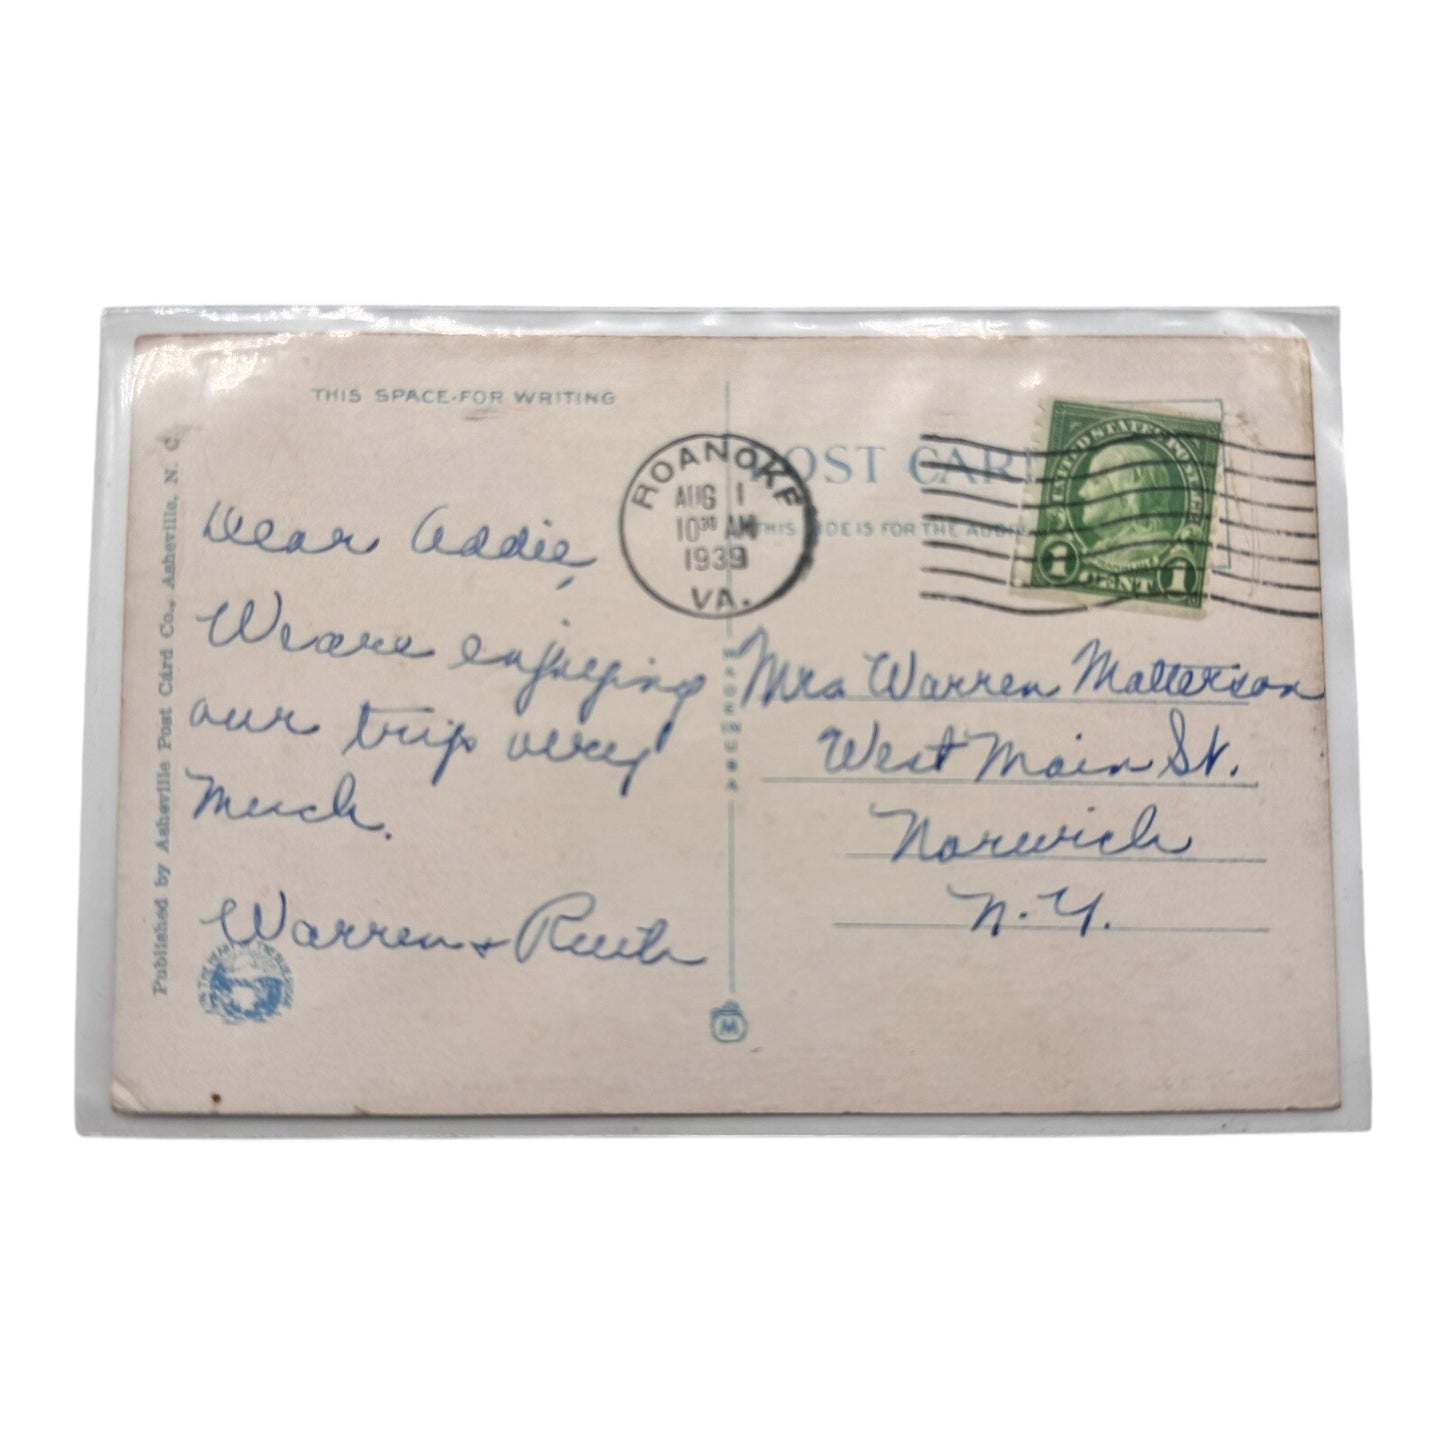 THIS SPACE FOR WRITING
Published by Asheville Post Card Co., Asheville, N. C.
Dear Addie,
We are enjoying
our trip very
Much.
Warren & Ruth
MADE IN USA
M
ROANOKE
AUG 1
10 30 AM
1939
VA.
POST CAR
THIS SIDE IS FOR THE ADDRE
UNITED STATES POSTAGE
1 CENT 1
Mrs Warren Matterson
West Main St.
Norwich
N.Y.